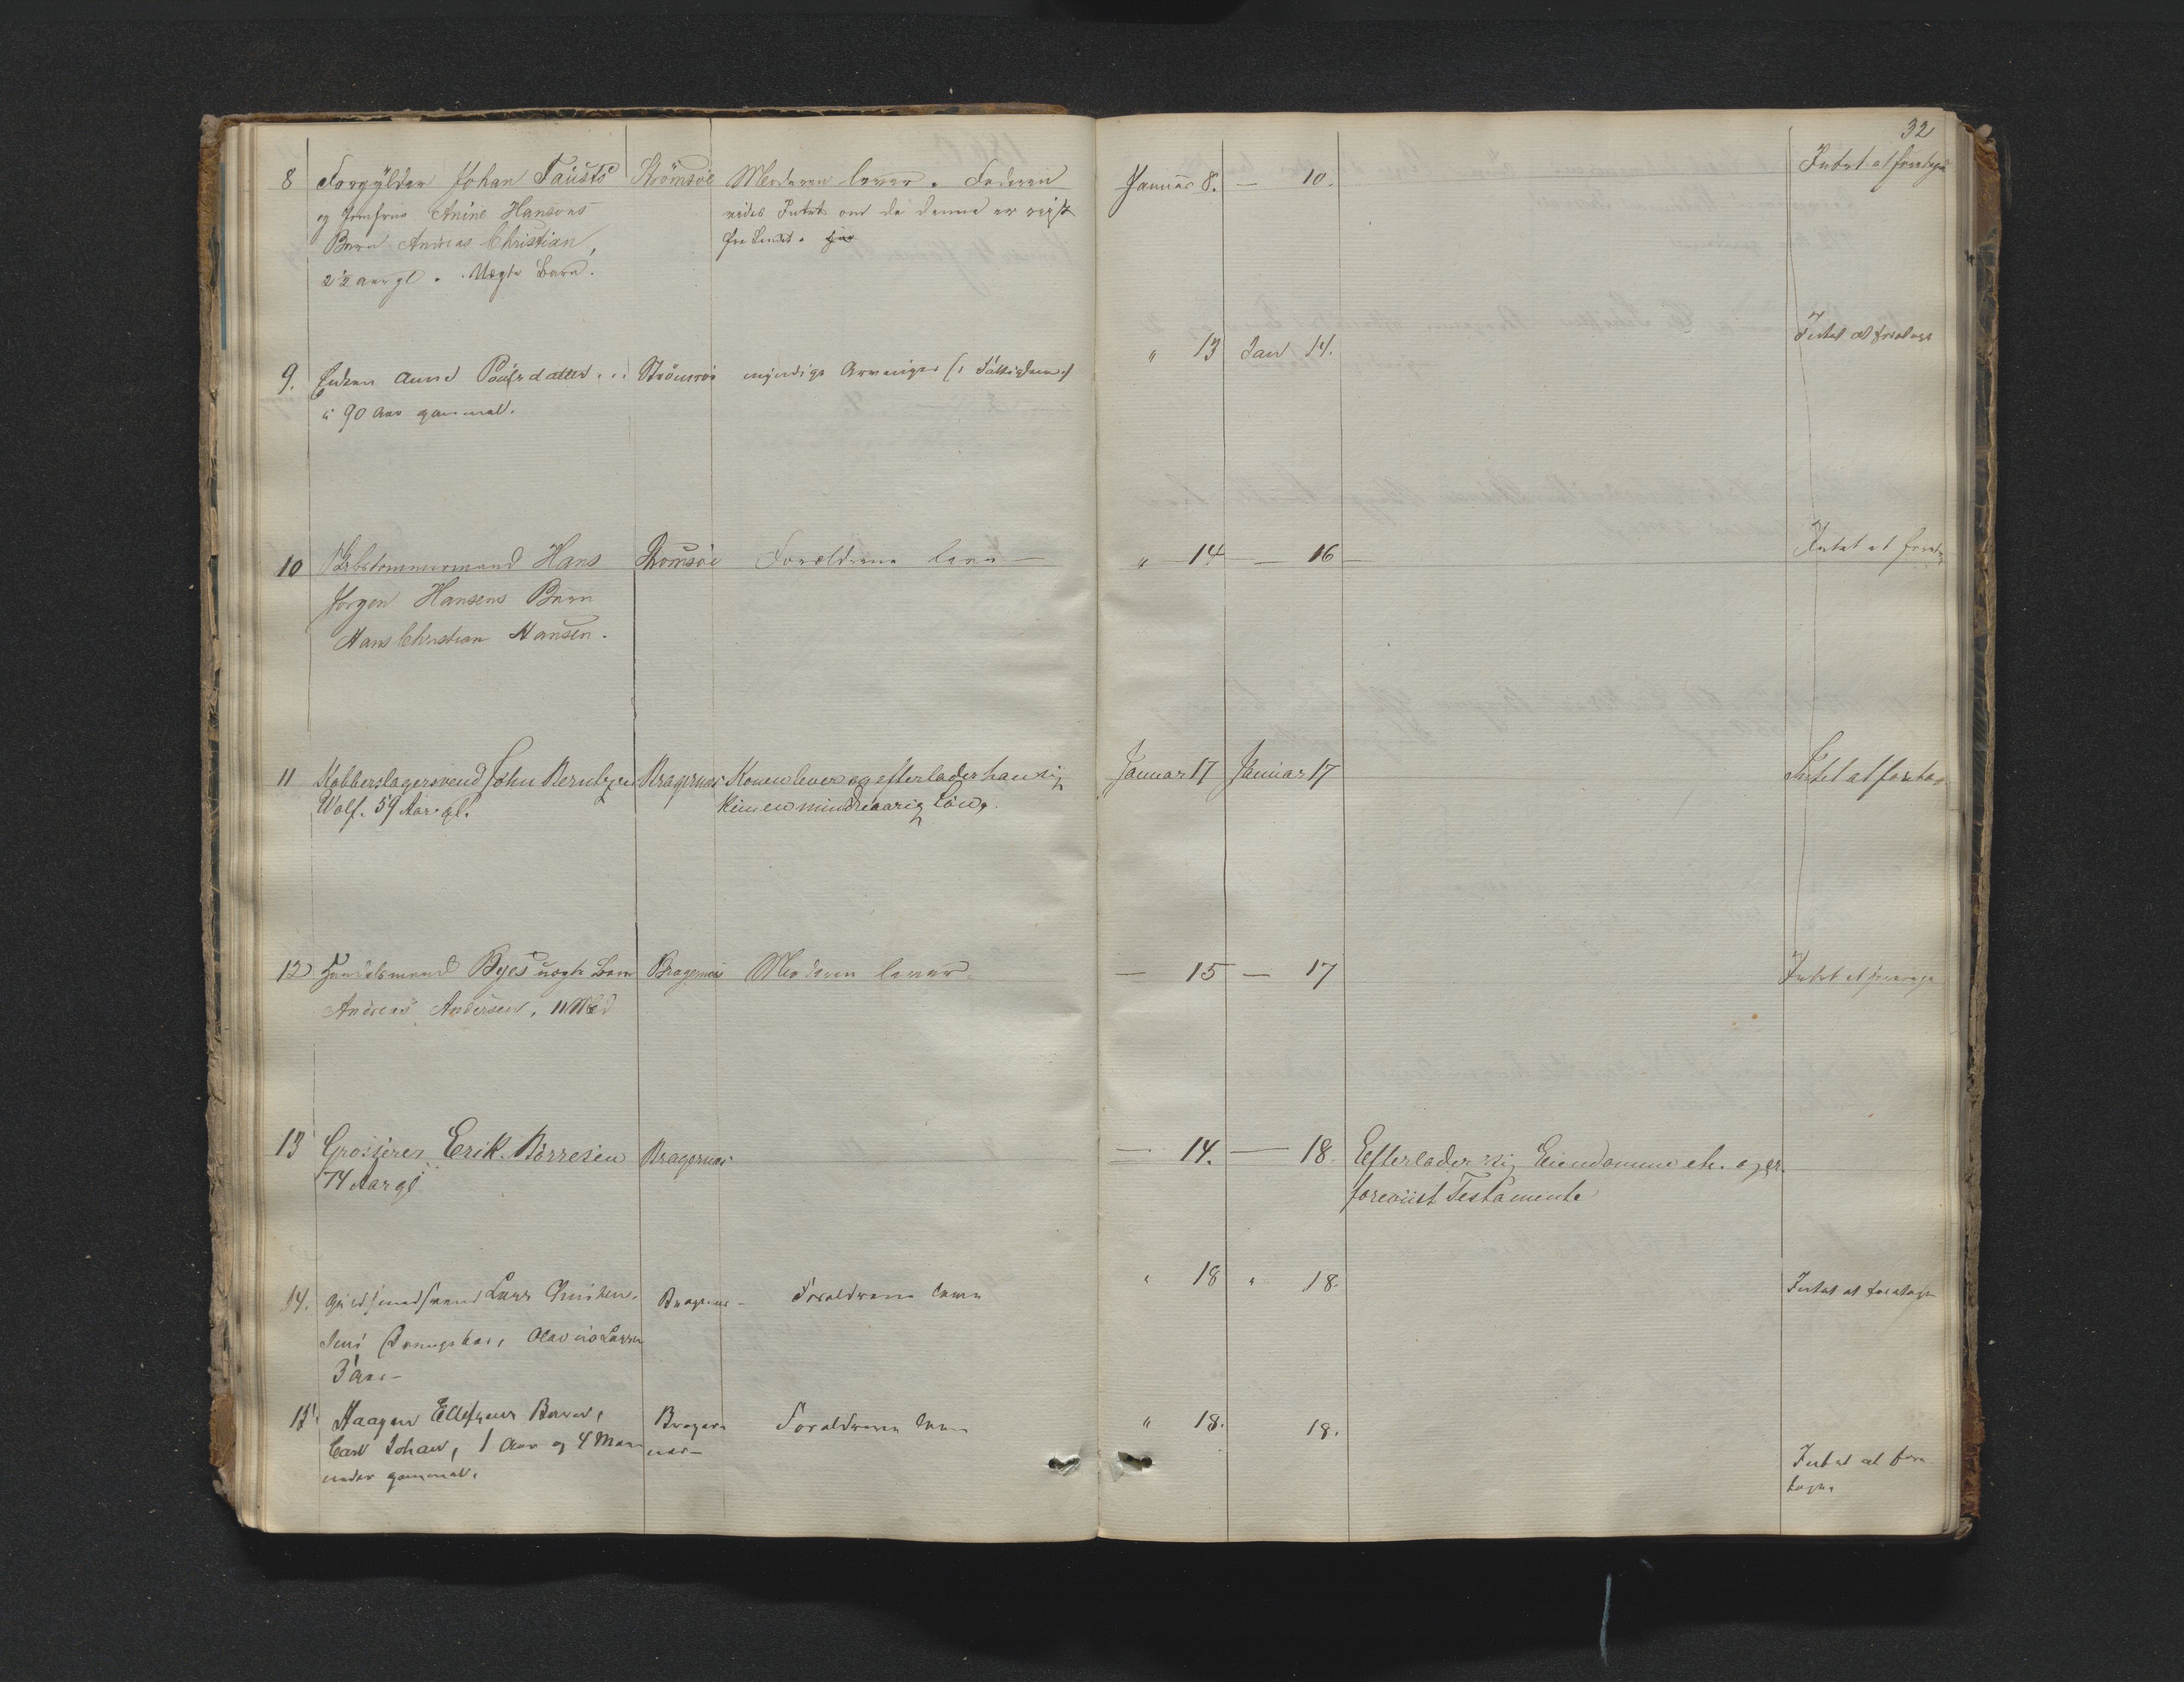 32
8 Forgylder Johan Fausts Strömsöe Moderen lever. Faderen Januar 8. — 10. Intet at foretage
og Jomfrue Anine Hansens vides Intet om da denne er reist
Barn Andreas Christian, fra Landet.
2½ aar gl. Uægte Barn.
9. Enken Anne Poulsdatter Strömsöe myndige Arvinger " 13 Jan 14. Intet at foretage
90 Aar gammel.
10 Hans Stromsöe Forældrene leve — " 14 — 16 — Intet at
Jörgen Hansens Barn
Hans Christian Hansen.
11 Kobberslagersvend John Berntzen Bragernæs Konen lever og efterlader han sig Januar 17 Januar 17 Intet at foretag
Wolf. 59 Aar gl. kun en mindreaarig Sön.
12 Handelsmand Byes uægte Barn Bragernæs Moderen lever. — 15 — 17 Intet at foretage
Andreas Andersen, 11 Md
13 Grosserer Erik Börresen Bragernæs — 14. — 18. Efterlader sig Eiendomme etc. og er
74 Aar gl foreviist Testamente
14. Lars Bragernæs Forældrene leve " 18 " 18. Intet at foretage
Olavia Larsen
3 Aar
15. Haagen Ellefsens Barn, Bragern Forældrene leve " 18. 18.
Carl Johan, 1 Aar og 4 Maa næs — Intet at fore
neder gammel. tages